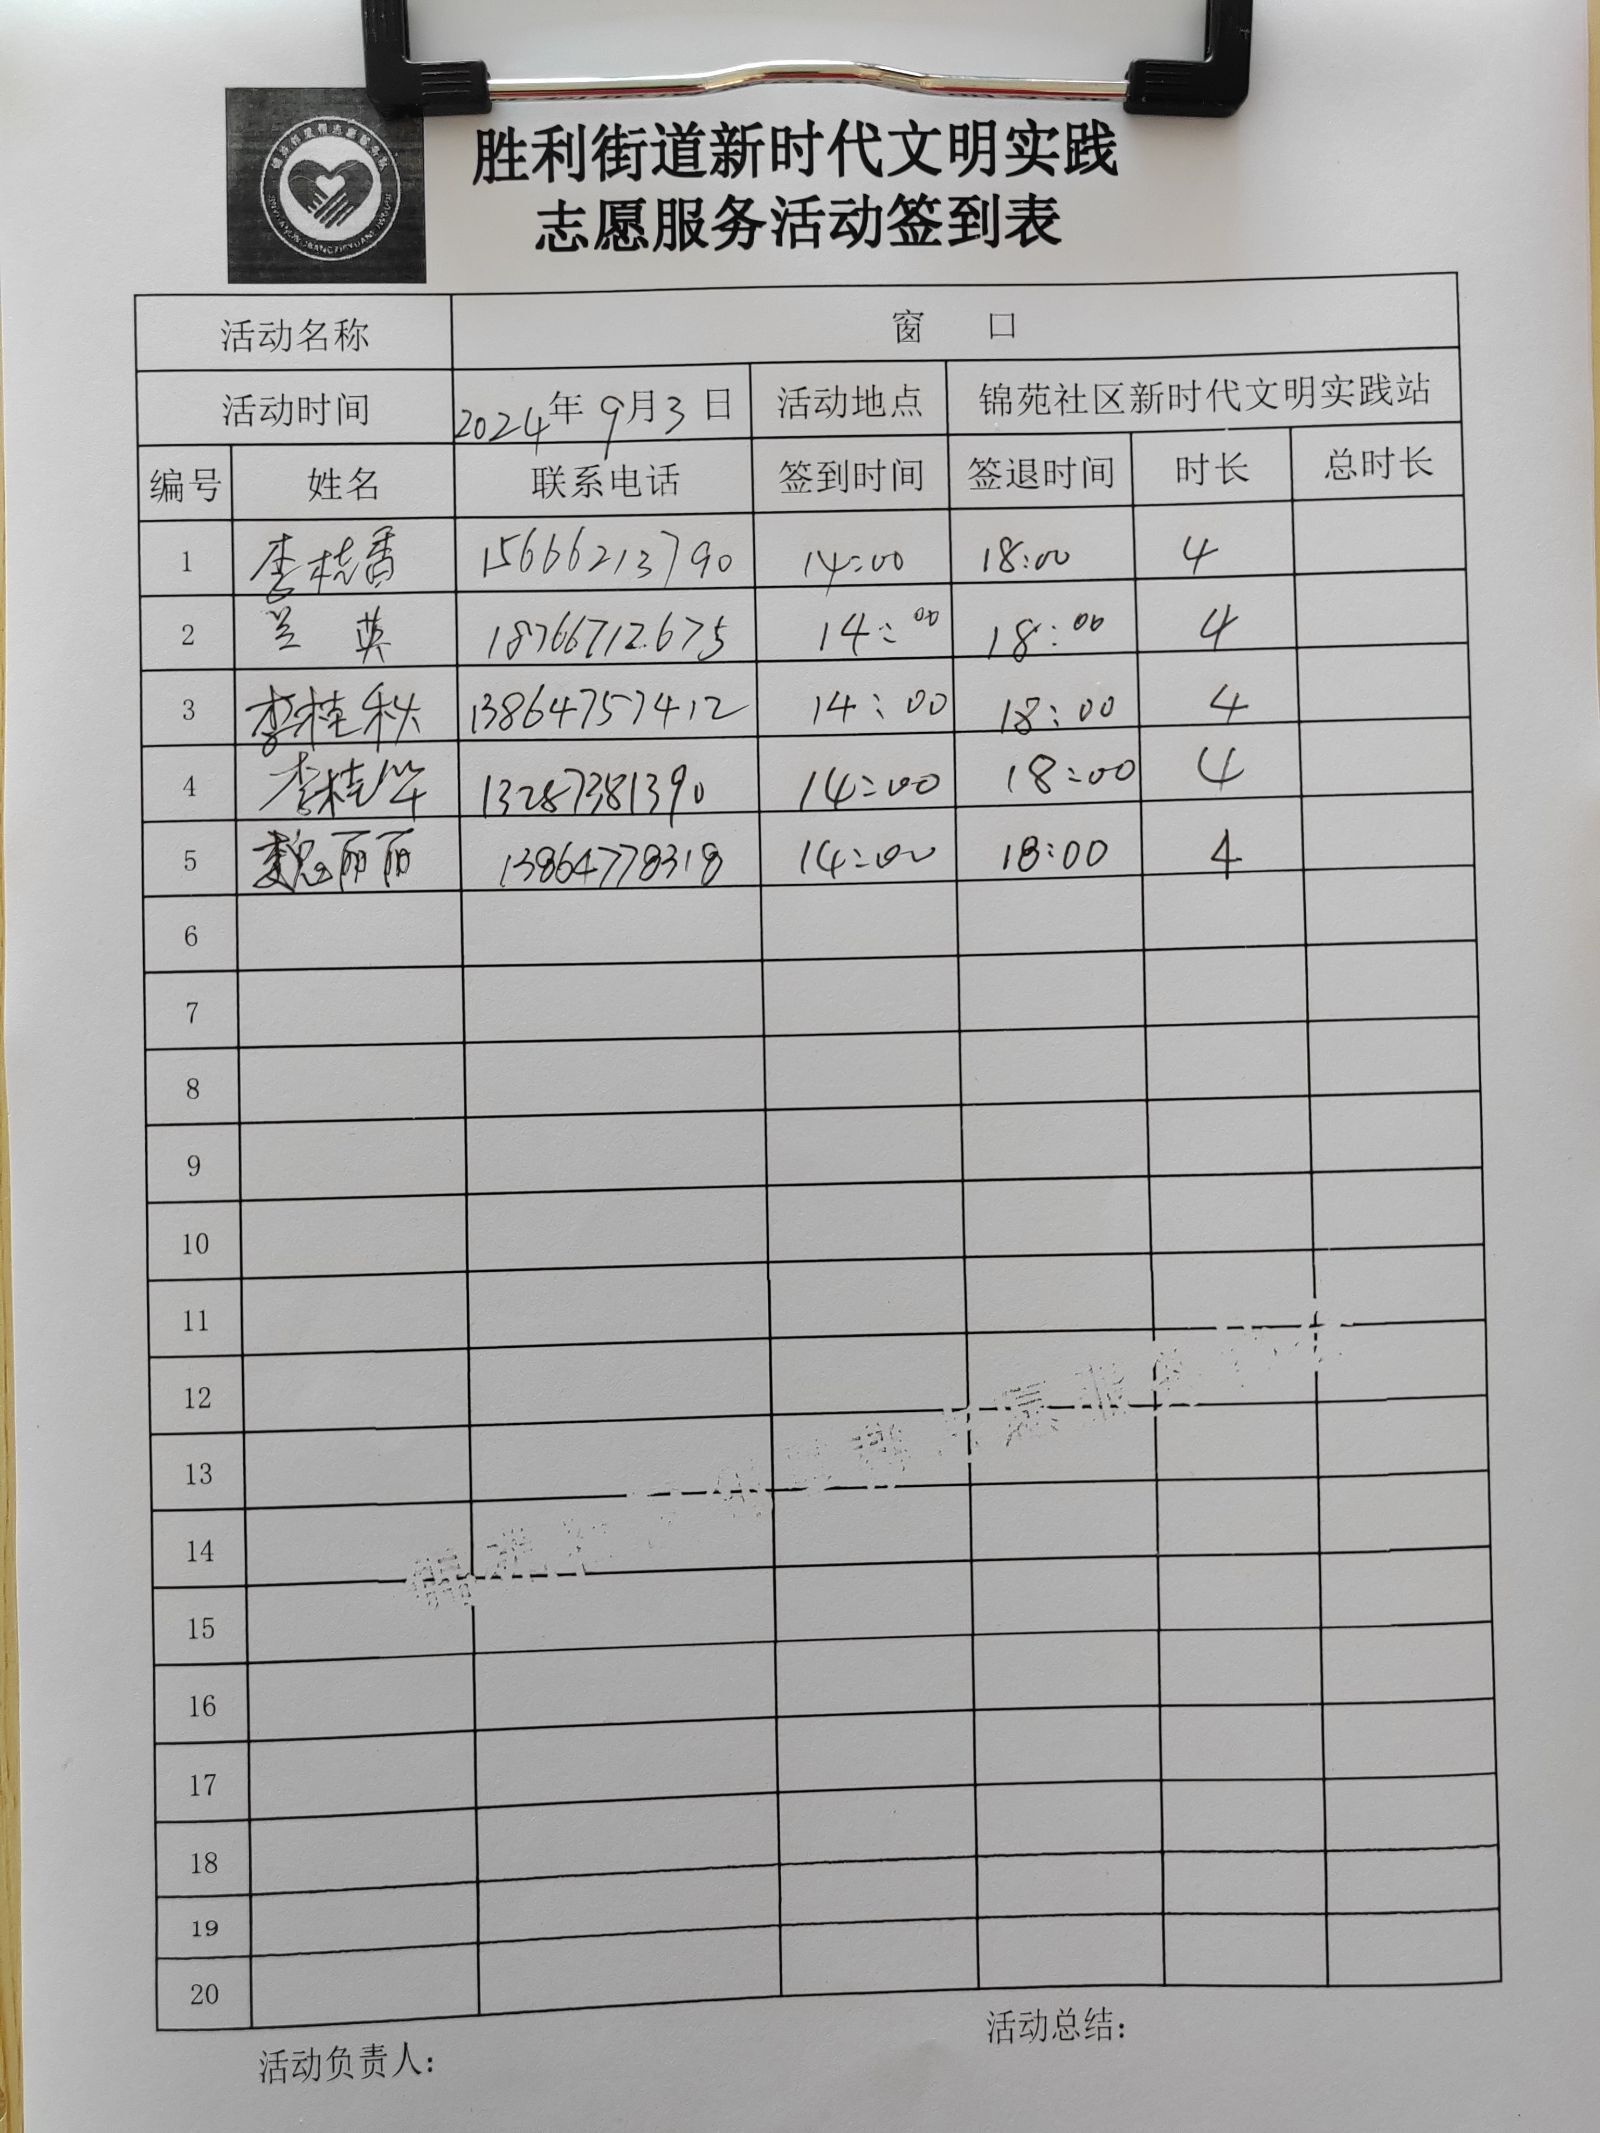 胜利街道新时代文明实践
志愿服务活动签到表
活动名称 窗 口
活动时间 2024年9月3日 活动地点 锦苑社区新时代文明实践站
编号 姓名 联系电话 签到时间 签退时间 时长 总时长
1 李桂香 15666213790 14:00 18:00 4
2 兰英 18766712675 14:00 18:00 4
3 李桂秋 13864757412 14:00 18:00 4
4 李桂华 13287381390 14:00 18:00 4
5 魏丽丽 13864778318 14:00 18:00 4
6
7
8
9
10
11
12
13
14
15
16
17
18
19
20
活动负责人: 活动总结: